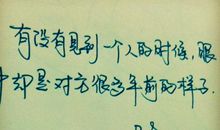 有没有见到一个人的时候,眼
中却是对方很多年前的样子.